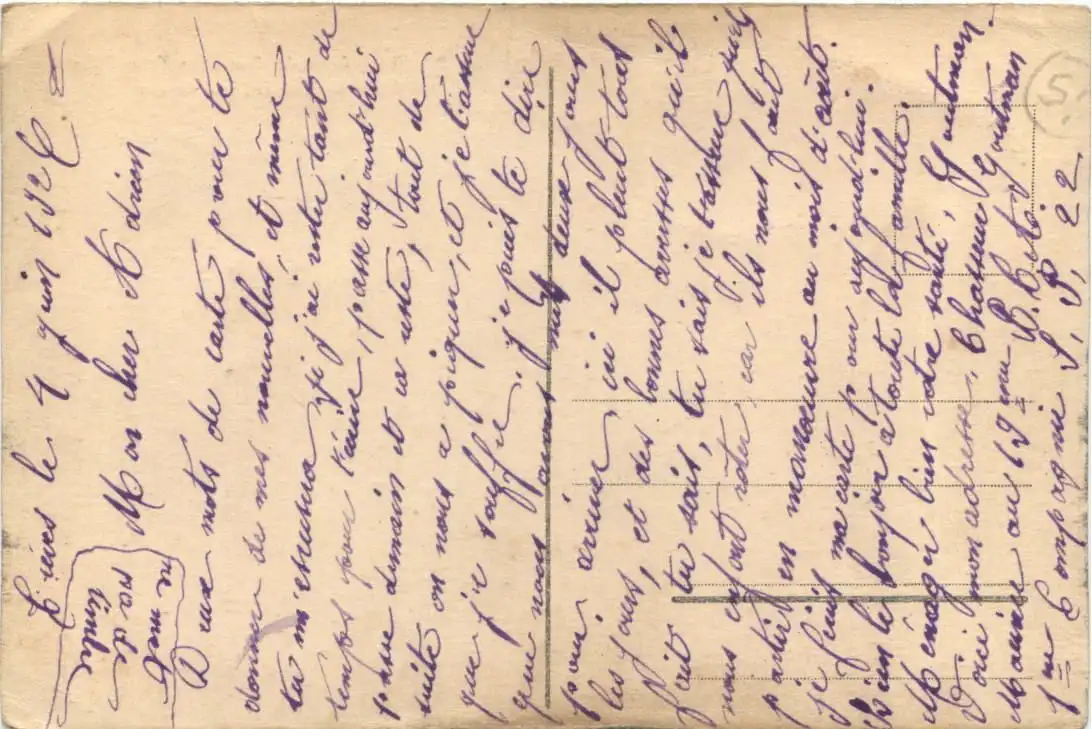 le 4 Juin 192
Mon cher Adrien
Deux mots de carte pour te
donner de mes nouvelles, et même
tu m'excusera si j'ai rester tant de
temps pour t'écrire, passe aujourd'hui
passe demain et ce reste, tout de
suite on nous a piquer, et je t'assure
que je souffre, je puis te dire
que nous avons huit deux jours
pour arriver ici il pleut tous
les jours, et des bonnes averses qu'il
fait tu sais, tu sais je t'assure qu'ils
nous en font roter car ils nous faut
partir en manoeuvre au mois d'août.
je finis ma carte pour aujourd'hui.
bien le bonjour à toute la famille.
Menager bien votre santé, Gutman.
Voici mon adresse. Chasseur Gutman
Maurice au 69me B.C.
1me Compagnie S. P. 22
ne
pas
timbre
S.